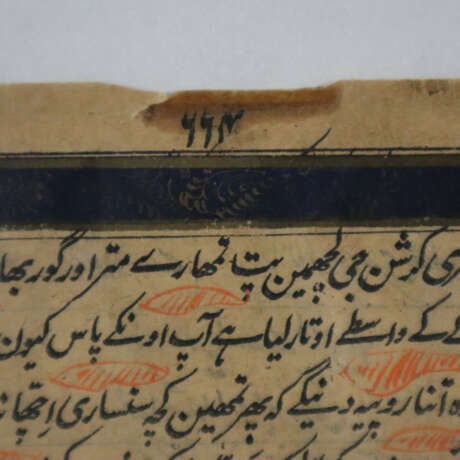 ۶۶۴
ری کرشن جی لچھمین پت تمھارے متر اور گور بھا
کے واسطے اوتار لیا ہے آپ اونکے پاس کیون
اتنا روپیہ دینگے کہ پھر تمھین کچھ سنساری اِچھا